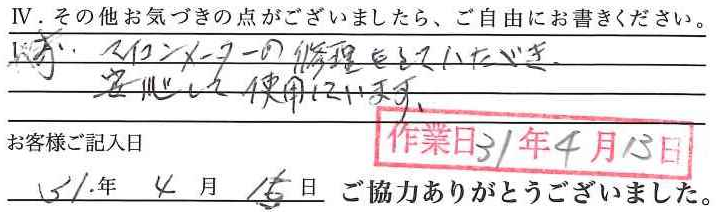 Ⅳ．その他お気づきの点がございましたら、ご自由にお書きください。
マイコンメーターの修理をしていただき、
安心して使用しています。
お客様ご記入日
作業日31年4月13日
31.年 4 月 15 日 ご協力ありがとうございました。